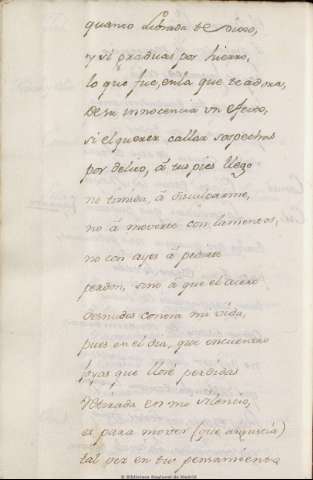 quanto librada de
y si graduas por hierro,
lo que fue, en la que te adora,
de su innocencia un efecto,
si el querer callar sospechas
por delito, á tus pies llego
no timida, á disculparme,
no á moverte con lamentos,
no con ayes á pedirte
perdon, sino á que el acero
desnudes contra mi vida,
pues en el dia, que encuentro
joyas que lloré perdidas
y librada en mi silencio,
es para morir (que angustia)
tal vez en tu pensamiento
© Biblioteca Nacional de Madrid